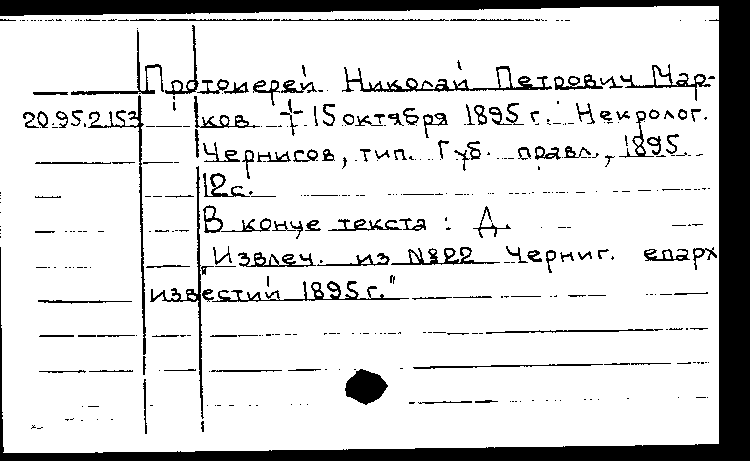 Протоиерей Николай Петрович Мар-
20.95.2.153 ков † 15 октября 1895 г. Некролог.
Чернигов, тип. Губ. правл., 1895.
12 с.
В конце текста: Д.
"Извлеч. из №22 Черниг. епарх
известий 1895 г."